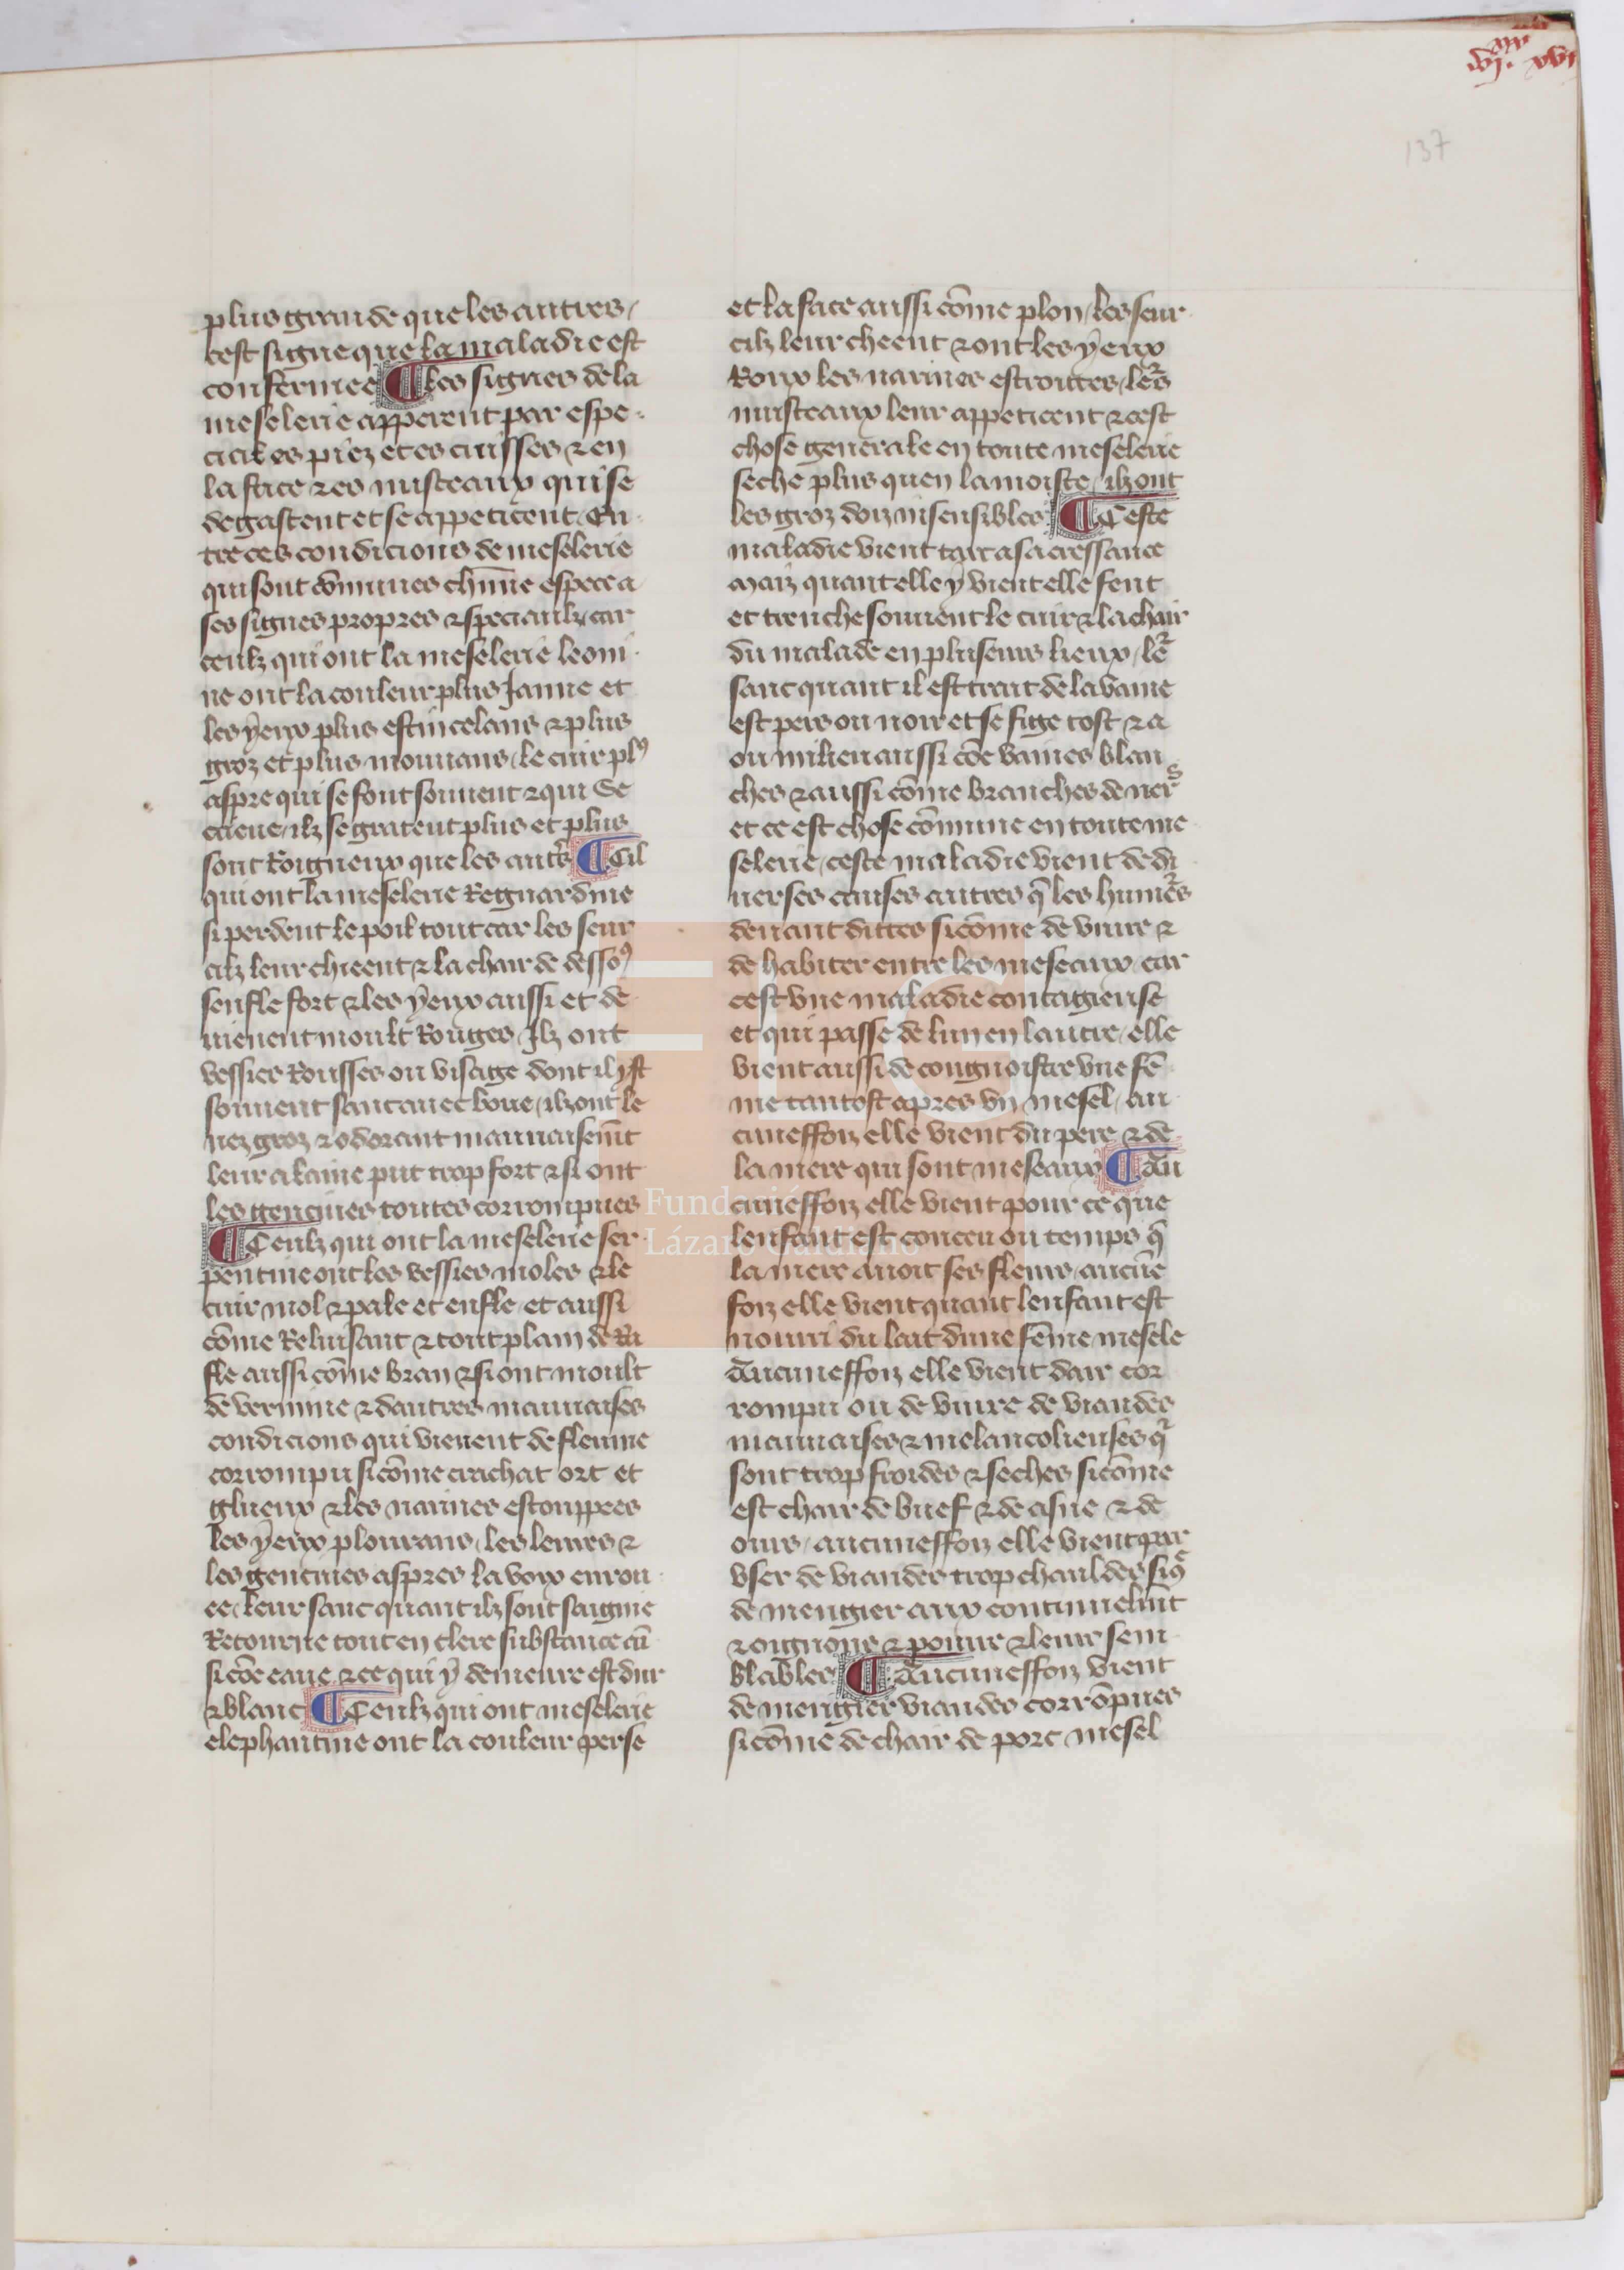 vixx xvi
137
plus grande que les autres /
cest signe que la maladie est
confermee ¶ Les signes de la
meselerie apperent par espe
cial es piez et es cuisses ⁊ en
la face ⁊ es musteaux qui se
degastent et se appeticent / En
tre ces condicions de meselerie
qui sont cōmunes chūne espece a
ses signes propres ⁊ speciaulx / car
ceulz qui ont la meselerie leoni
ne ont la couleur plus Jaune et
les ẏeux plus estincelans ⁊ plus
groz et plus mouuans / le cuir plꝰ
aspre qui se font souuent ⁊ qui Se
crieue / ilz se gratent plus et plus
sont Roigneux que les autr̄s ¶ Cil
qui ont la meselerie Regnardine
si perdent le poil tout car les seur
cilz leur chieent ⁊ la chair de dessoꝰ
senfle fort ⁊ les ẏeux aussi et de
uienent moult Rouges / Ilz ont
vessies Rousses ou visage dont il yst
souuent sanc auec boue / ilz ont le
nez groz ⁊ odorant mauuaisem̄t
leur alaine put trop fort ⁊ si ont
les genciues toutes corrompues
¶ Ceulz qui ont la meselerie ser
pentine ont les vessies moles ⁊ le
cuir mol ⁊ pale et enfle / et aussi
cōme Reluisant ⁊ tout plain de Ri
fle aussi cōme bran ⁊ si ont moult
de vermine ⁊ dautres mauuaises
condicions qui vienent de fleume
corrompu si cōme crachat ort et
glueux ⁊ les narines estouppees
les ẏeux plourans / les leures ⁊
les genciues aspres la voix enrou
ee / leur sanc quant ilz sont saignie
Retourne tout en clere substance
si cōe eaue ⁊ ce qui ẏ demeure est dur
⁊ blanc ¶ Ceulz qui ont meselerie
elephantine ont la couleur perse
et la face aussi cōme plon / les seur
cilz leur cheent ⁊ ont les ẏeux
Roux les narines estroittes / leᷣs
musteaux leur appeticent ⁊ cest
chose generale en toute meselerie
seche plus quen la moiste / ilz ont
les groz doiz insensibles ¶ Ceste
maladie vient tart a sa cressance
Maiz quant elle ẏ vient elle fent
et trenche souuent le cuir ⁊ la chair
du malade en pluseurs lieux / leᷣ
sanc quant il est trait de la vaine
est pers ou noir et se fige tost ⁊ a
ou milieu aussi cōe vaines blan
ches ⁊ aussi cōme branches de nerfs
et ce est chose cōmune en toute me
selerie / ceste maladie vient de di
uerses causes autres q̄ les humeᷣs
deuant dittes si cōme de viure ⁊
de habiter entre les meseaux / car
cest vne maladie contagieuse
et qui passe de lun en lautre / elle
vient aussi de congnoistre vne fē
me tantost apres vn mesel / au
cuneffoiz elle vient du pere ⁊ de
la mere qui sont meseaux ¶ Au
cuneffoiz elle vient pour ce que
lenfant est conceu ou temps q̄
la mere auoit ses fleurs / aucūe
foiz elle vient quant lenfant est
nourri du lait dune fēme mesele
Aucuneffoiz elle vient dair cor
rompu ou de viure de viandes
mauuaises ⁊ melancolieuses qͥ
sont trop froides ⁊ seches si cōme
est chair de buef ⁊ de asne ⁊ de
ours / aucuneffoiz elle vient par
vser de viandes trop chauldes si qᷓ
de mengier aux continuelm̄t
⁊ oignons ⁊ poiure ⁊ leur sem
blables ¶ Aucuneffoiz vient
de mengier viandes corrōpues
si cōme de chair de porc mesel
Fundación
Lázaro Galdiano